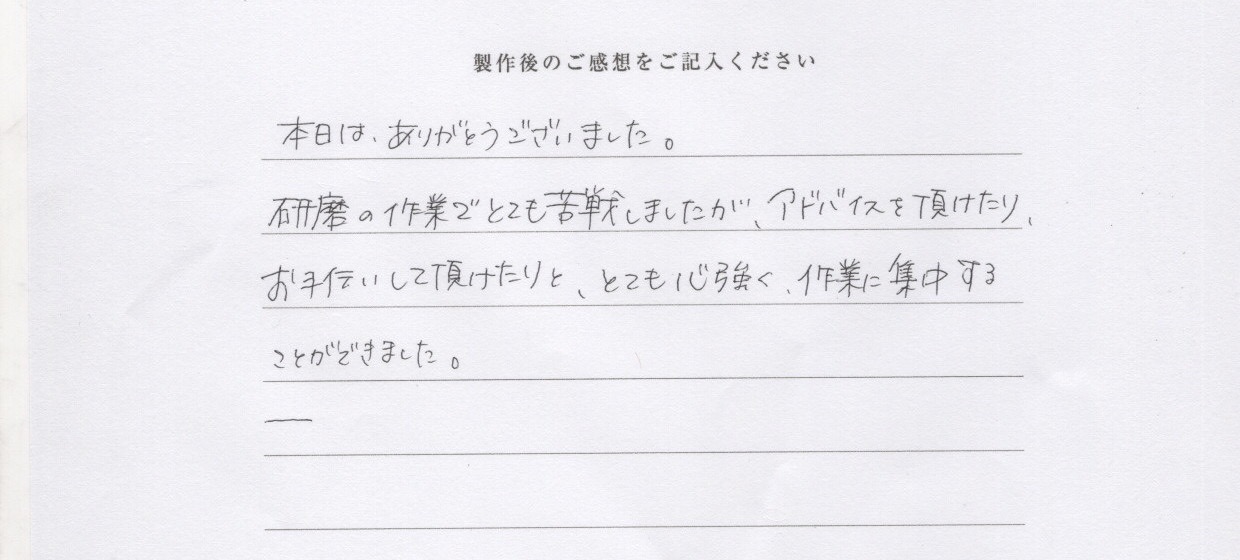 製作後のご感想をご記入ください
本日は、ありがとうございました。
研磨の作業でとても苦戦しましたが、アドバイスを頂けたり、
お手伝いして頂けたりと、とても心強く、作業に集中する
ことができました。